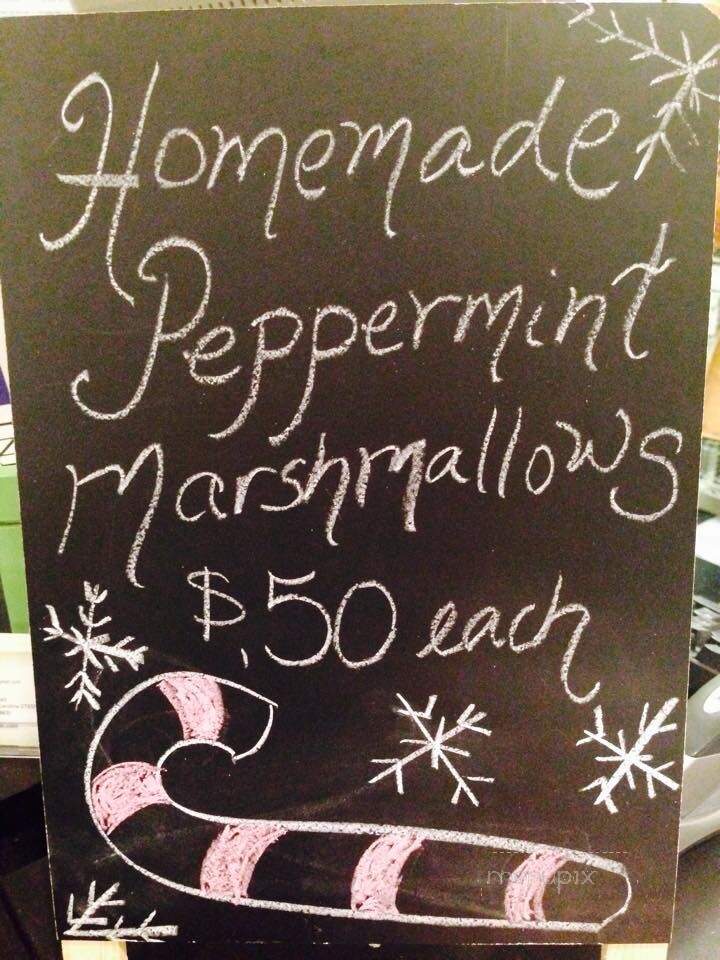 Homemade
Peppermint
Marshmallows
$.50 each
menupix